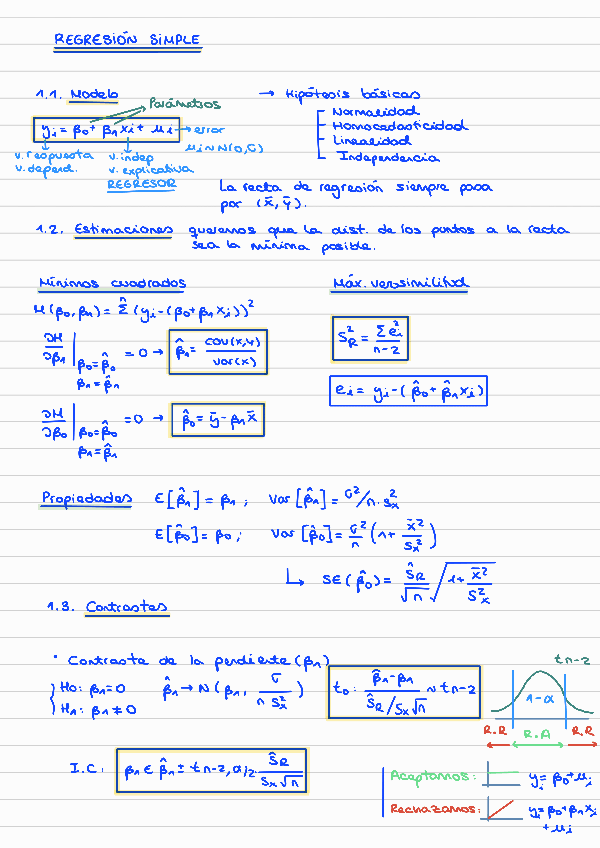 REGRESIÓN SIMPLE
1.1. Modelo
Parámetros
yi = β0 + β1 xi + μi → error
μi ~ N(0, σ)
v. respuesta
v. depend.
v. indep
v. explicativa
REGRESOR
→ Hipótesis básicas
Normalidad
Homocedasticidad
Linealidad
Independencia
La recta de regresión siempre pasa
por (x̄, ȳ).
1.2. Estimaciones queremos que la dist. de los puntos a la recta
sea la mínima posible.
Mínimos cuadrados
M(β0, β1) = Σⁿ (yi - (β0 + β1 xi))²
∂M/∂β1 | β0 = β̂0, β1 = β̂1 = 0 → β̂1 = cov(x,y)/var(x)
∂M/∂β0 | β0 = β̂0, β1 = β̂1 = 0 → β̂0 = ȳ - β1 x̄
Máx. versimilitud
S²R = Σ ei² / n-2
ei = yi - (β̂0 + β̂1 xi)
Propiedades E[β̂1] = β1; Var[β̂1] = σ²/n·s²x
E[β̂0] = β0; Var[β̂0] = σ²/n (1 + x̄²/s²x)
↳ SE(β̂0) = ŜR/√n √(1 + x̄²/S²x)
1.3. Contrastes
• Contraste de la pendiente (β1)
H0: β1 = 0
H1: β1 ≠ 0
β̂1 → N(β1, σ/n S²x)
t0: β̂1 - β1 / ŜR/Sx√n ~ tn-2
tn-2
1-α
R.R R.A R.R
I.C: β1 ∈ β̂1 ± tn-2, α/2 · ŜR/Sx√n
Aceptamos: yi = β0 + μi
Rechazamos: yi = β0 + β1 xi
+ μi